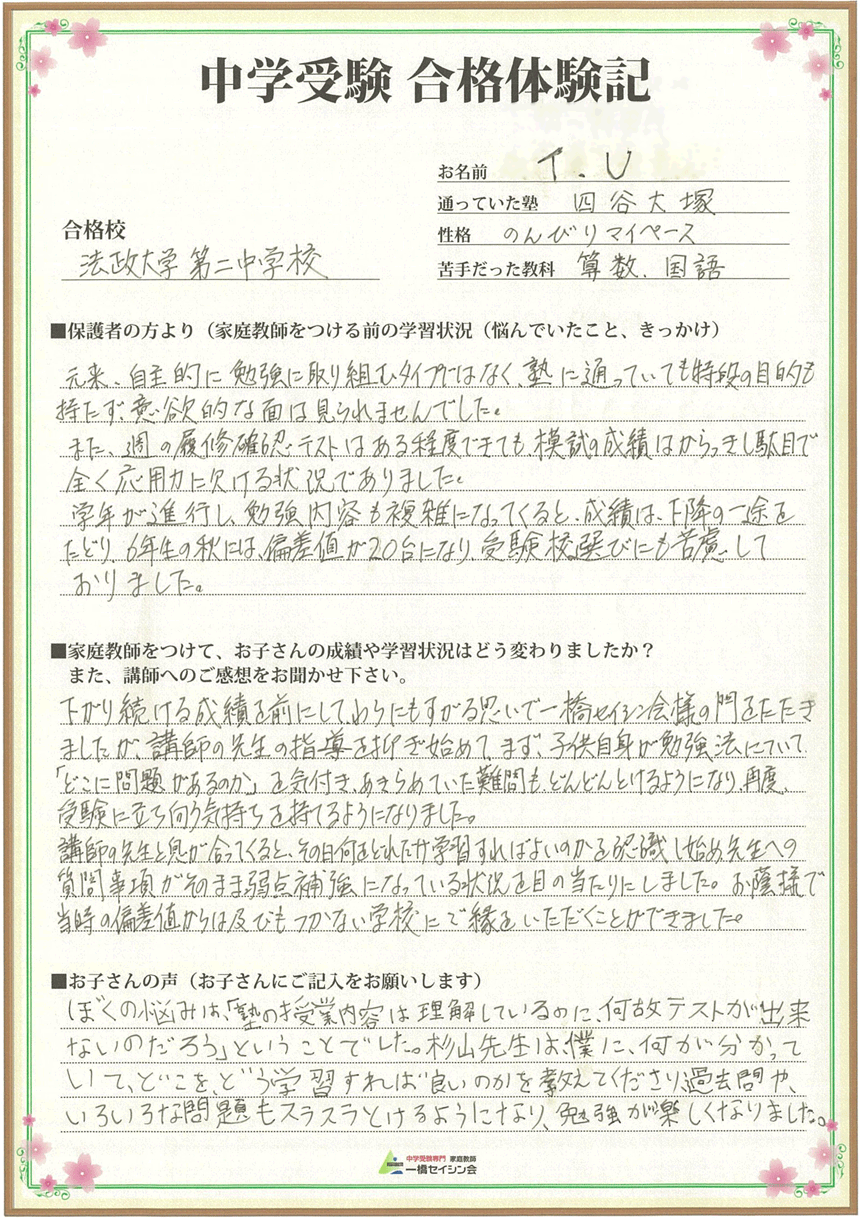 中学受験 合格体験記
お名前 T.U
通っていた塾 四谷大塚
合格校
性格 のんびりマイペース
法政大学第二中学校
苦手だった教科 算数、国語
■保護者の方より（家庭教師をつける前の学習状況（悩んでいたこと、きっかけ）
元来、自主的に勉強に取り組むタイプではなく、塾に通っていても特段の目的も
持たず、意欲的な面は見られませんでした。
また、週の履修確認テストはある程度できても、模試の成績はからっきし駄目で
全く応用力に欠ける状況でありました。
学年が進行し、勉強内容も複雑になってくると、成績は、下降の一途を
たどり、6年生の秋には、偏差値が20台になり、受験校選びにも苦慮して
おりました。
■家庭教師をつけて、お子さんの成績や学習状況はどう変わりましたか？
また、講師へのご感想をお聞かせ下さい。
下がり続ける成績を前にして、わらにもすがる思いで一橋セイシン会様の門をたたき
ましたが、講師の先生の指導を仰ぎ始めて、まず、子供自身が勉強法について、
「どこに問題があるのか」を気付き、あきらめていた難問も、どんどんとけるようになり、再度、
受験に立ち向う気持ちを持てるようになりました。
講師の先生と息が合ってくると、その日何をどれだけ学習すればよいのかを認識し始め、先生への
質問事項がそのまま弱点補強になっている状況を目の当たりにしました。お蔭様で
当時の偏差値からは及びもつかない学校にご縁をいただくことができました。
■お子さんの声（お子さんにご記入をお願いします）
ぼくの悩みは、「塾の授業内容は理解しているのに、何故テストが出来
ないのだろう」ということでした。杉山先生は、僕に、何が分かって
いて、どこを、どう学習すれば良いのかを教えてくださり、過去問や、
いろいろな問題もスラスラとけるようになり、勉強が楽しくなりました。
中学受験専門 家庭教師
一橋セイシン会